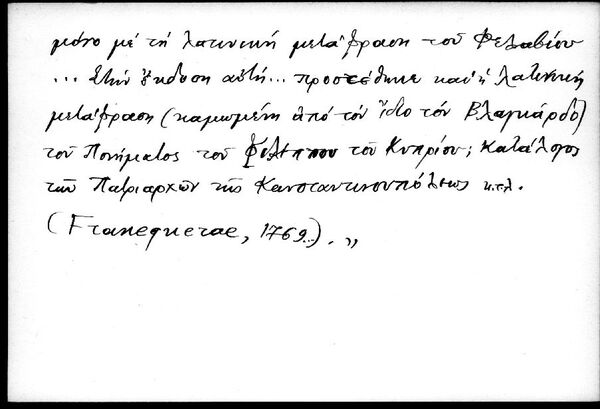 μόνο μέ τή λατινική μετάφραση τοῦ Φελαβίου
... Στήν ἔκδοση αὐτή... προστέθηκε καί ἡ λατινική
μετάφραση (καμωμένη ἀπό τόν ἴδιο τόν Βλαγκάρδο)
τοῦ Πονήματος τοῦ Φιλίππου τοῦ Κυπρίου; Κατάλογος
τῶν Πατριαρχῶν τῆς Κωνσταντινουπόλεως κ.τ.λ.
(Franequerae, 1769...). „